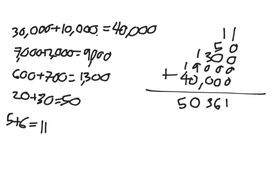 30,000+10,000=40,000
7,000+2,000=9,000
600+700=1,300
20+30=50
5+6=11
11
50
1300
19000
+40,000
50361